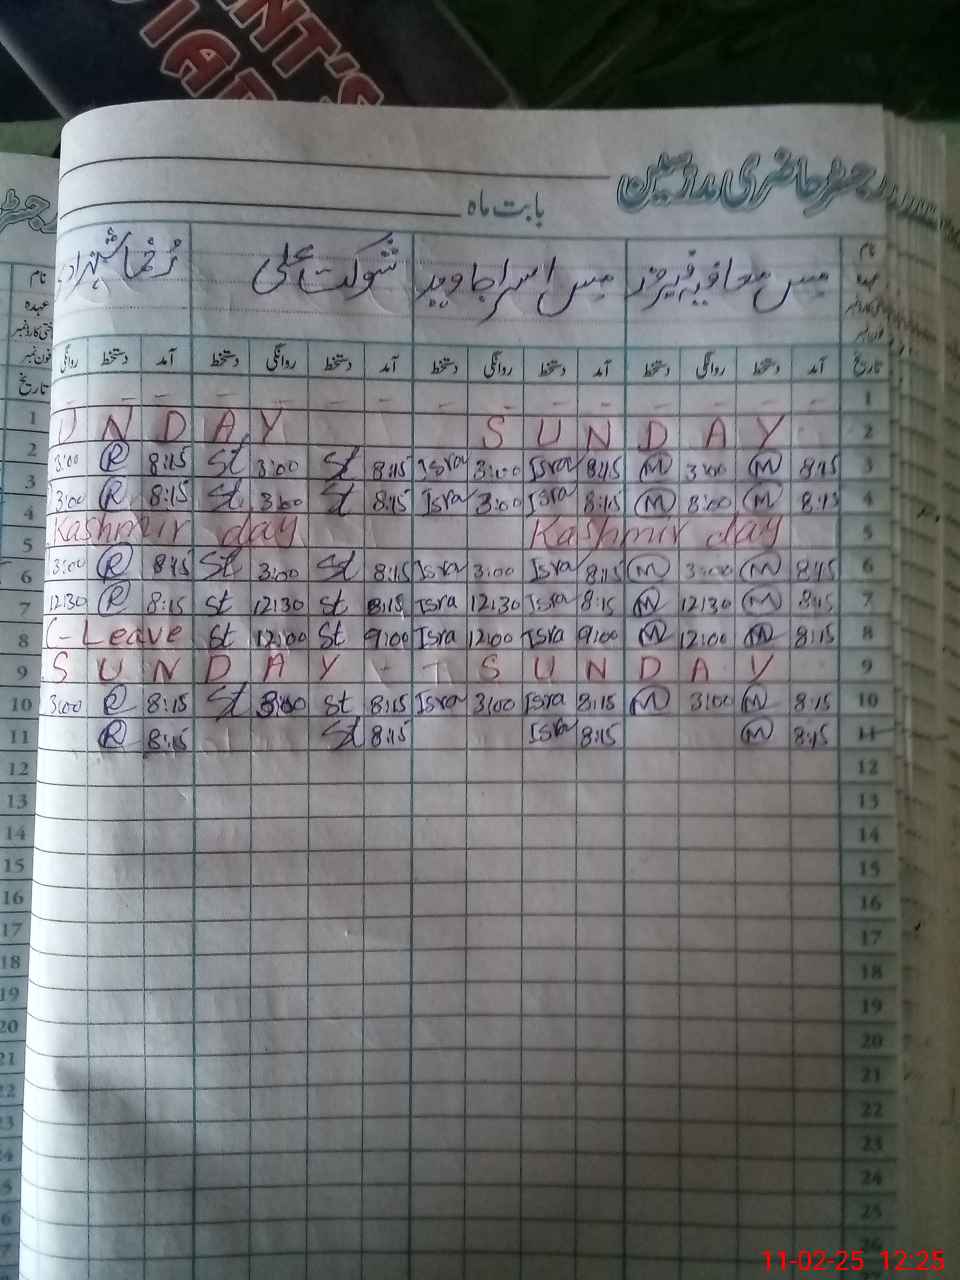 NT'S
IAR
رجسٹر حاضری مدرسین
بابت ماہ
نام
عہدہ
شوکت علی
مس اسرا جاوید
تاریخ آمد دستخط روانگی دستخط آمد دستخط روانگی دستخط آمد دستخط روانگی دستخط آمد دستخط روانگی
1 - - - - - - - - - -
U N D A Y S U N D A Y 2
3:00 R 8:15 St 3:00 St 8:15 Isra 3:00 Isra 8:15 M 3:00 M 8:15 3
3:00 R 8:15 St 3:00 St 8:15 Isra 3:00 Isra 8:15 M 3:00 M 8:15 4
Kashmir day Kashmir day 5
3:00 R 8:15 St 3:00 St 8:15 Isra 3:00 Isra 8:15 M 3:00 M 8:15 6
12:30 R 8:15 St 12:30 St 8:15 Isra 12:30 Isra 8:15 M 12:30 M 8:15 7
C-Leave St 12:00 St 9:00 Isra 12:00 Isra 9:00 M 12:00 M 8:15 8
S U N D A Y - - S U N D A Y 9
3:00 R 8:15 St 3:00 St 8:15 Isra 3:00 Isra 8:15 M 3:00 M 8:15 10
R 8:15 St 8:15 Isra 8:15 M 8:15 11
12
13
14
15
16
17
18
19
20
21
22
23
24
25
26
11-02-25 12:25